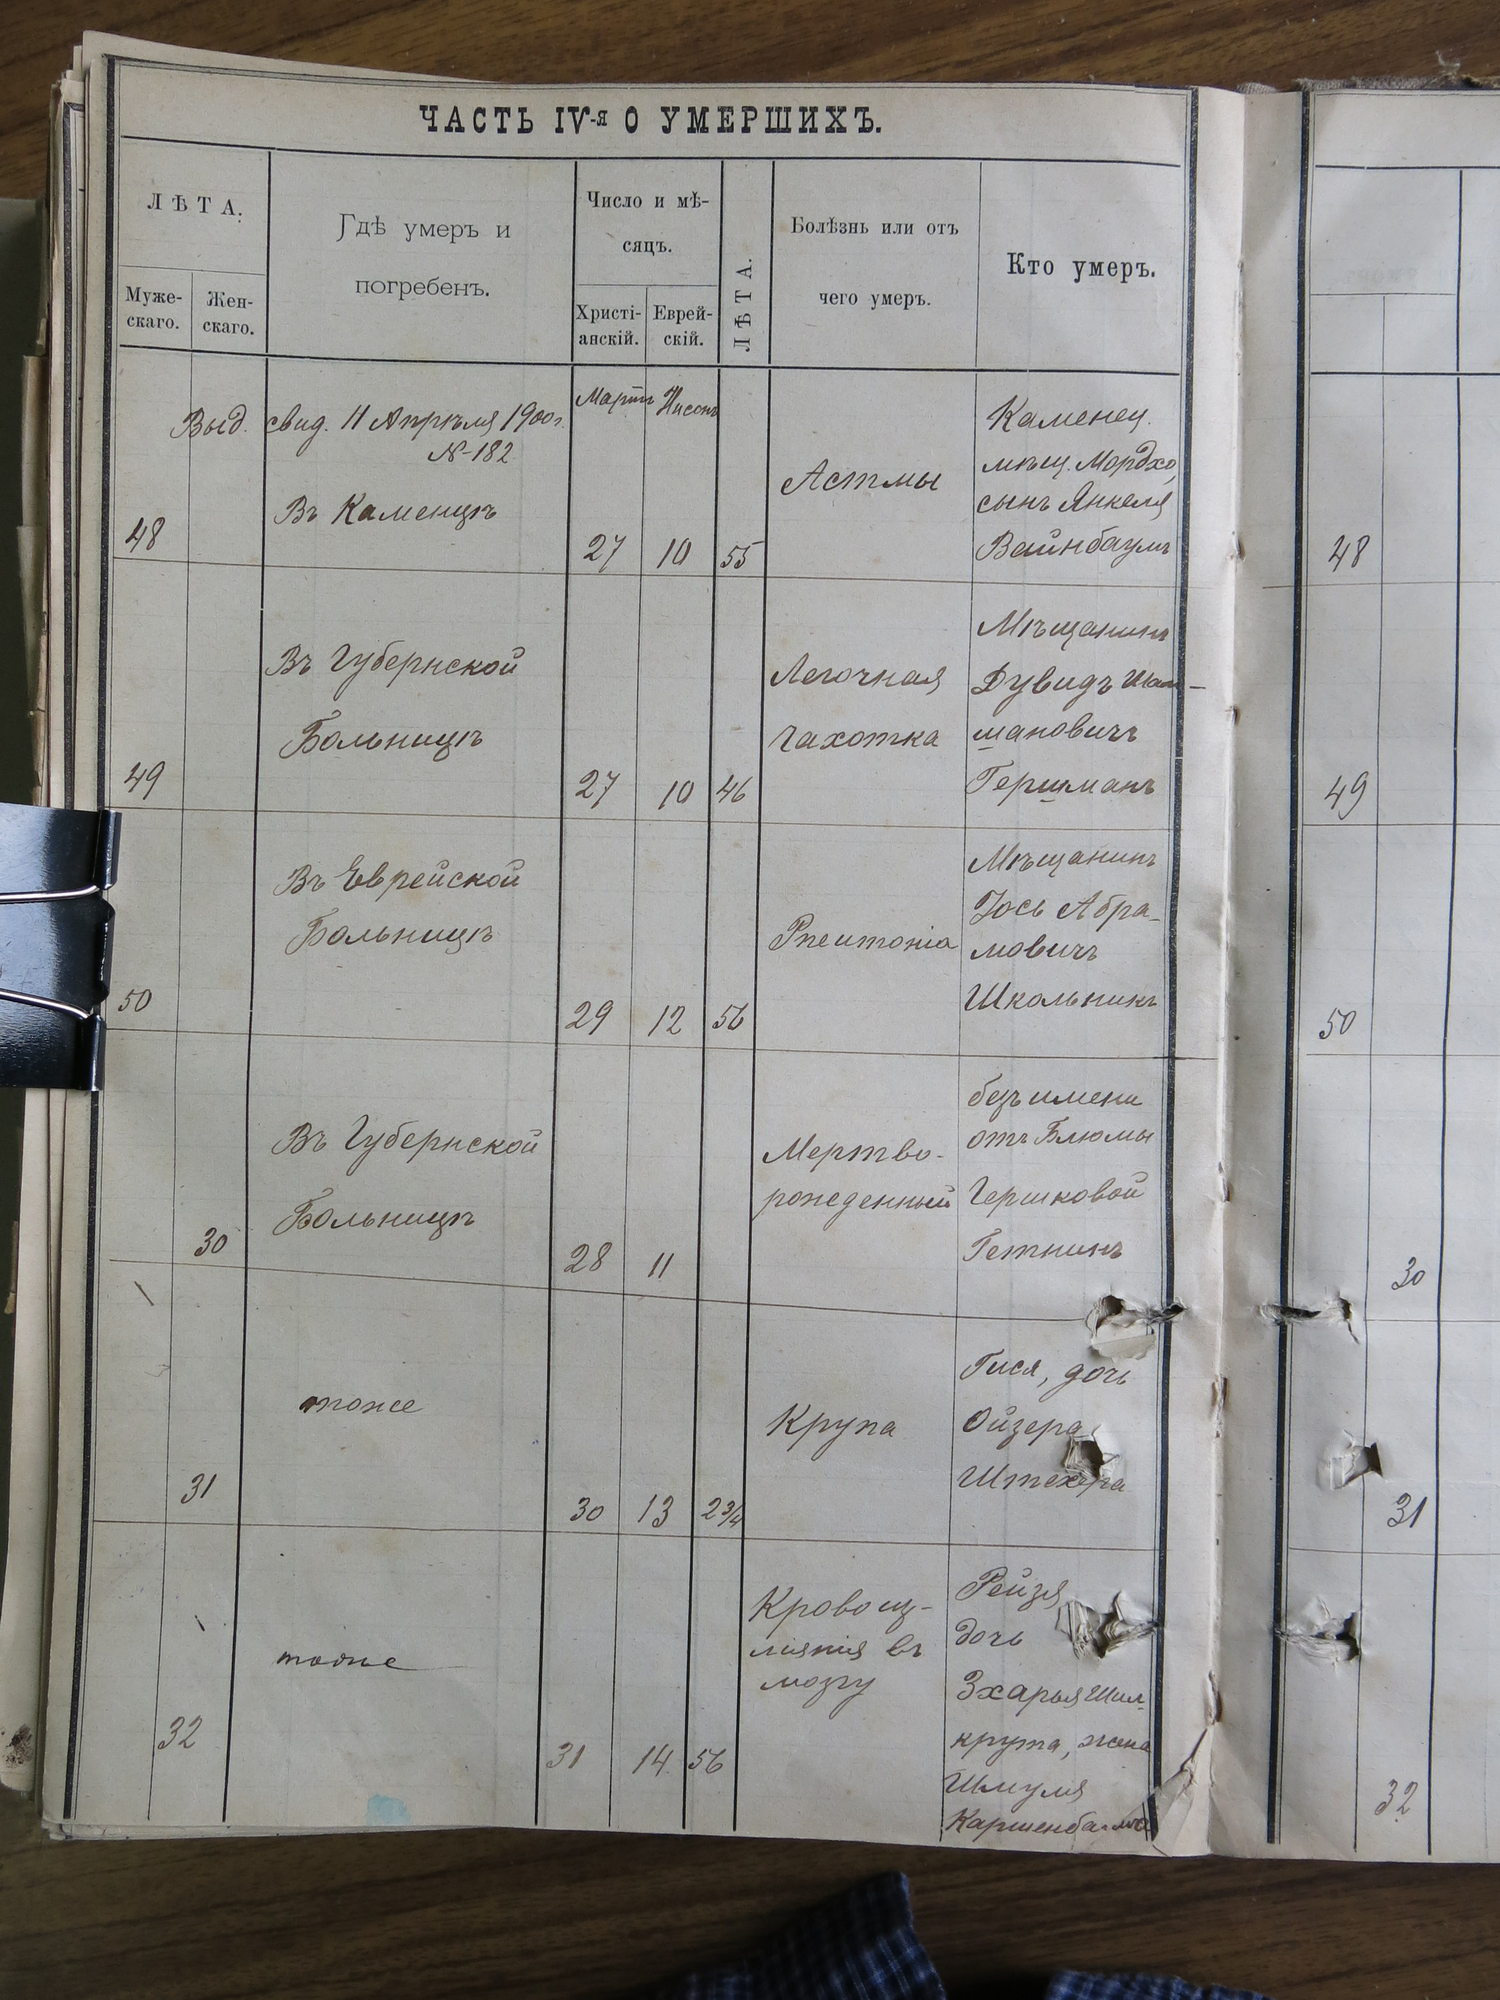 ЧАСТЬ IV-я О УМЕРШИХЪ.
ЛѢТА.
Муже-
скаго.
Жен-
скаго.
Гдѣ умеръ и
погребенъ.
Число и мѣ-
сяцъ.
Христі-
анскій.
Еврей-
скій.
ЛѢТА.
Болѣзнь или отъ
чего умеръ.
Кто умеръ.
Выд. свид. 11 Апрѣля 1900 г.
№ 182
48
Въ Каменцѣ
Мартъ
27
Нисонъ
10
55
Астмы
Каменец.
мѣщ. Мордхо,
сынъ Янкеля
Вайнбаумъ
48
49
Въ Губернской
Больницѣ
27
10
46
Легочная
чахотка
Мѣщанинъ
Дувидъ Шли-
мановичъ
Гершманъ
49
50
Въ Еврейской
Больницѣ
29
12
56
Pneumonia
Мѣщанинъ
Іось Абра-
мовичъ
Школьникъ
50
30
Въ Губернской
Больницѣ
28
11
Мертво-
рожденный
безъ имени
отъ Блюмы
Гершковой
Гетнинъ
30
31
тоже
30
13
2 3/4
Крупа
Гися, дочь
Ойзера
Штехера
31
32
тоже
31
14
56
Кровоиз-
ліянія въ
мозгу
Рейзя,
дочь
Зхарья Шил-
крута, жена
Шмуля
Каршенбаума
32